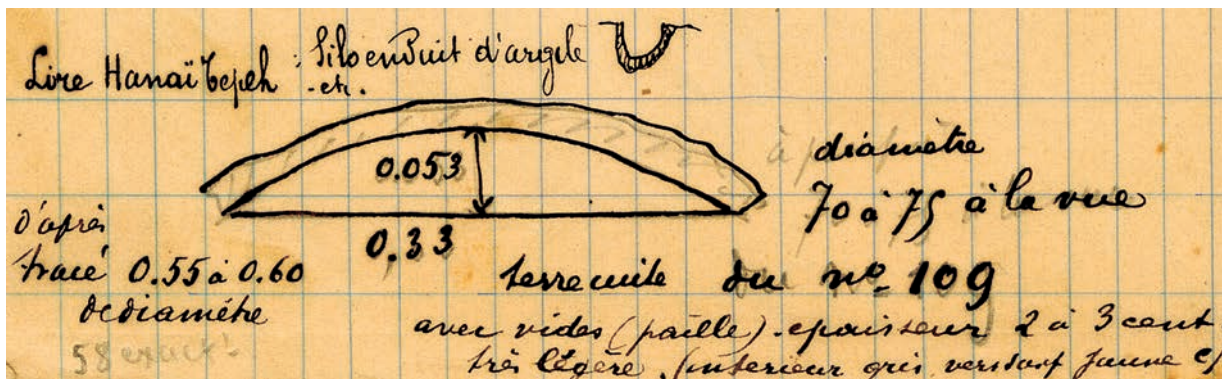 Lire Hanaï Tepeh : Silo enduit d'argile
- etc.
0.053
0.33
diamètre
70 à 75 à la vue
d'après
tracé 0.55 à 0.60
de diamètre
58 exact
terre cuite du nº 109
avec vides (paille). epaisseur 2 à 3 cent
très légère, (interieur gris verdatr jaune